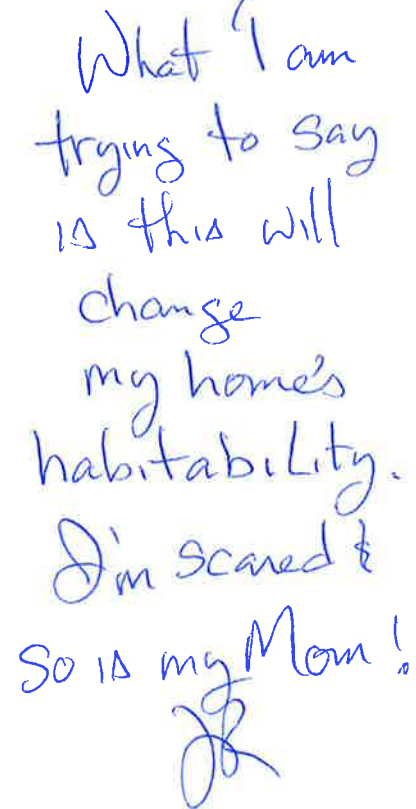 What I am
trying to say
is this will
change
my home's
habitability.
I'm scared &
so is my Mom!
JR